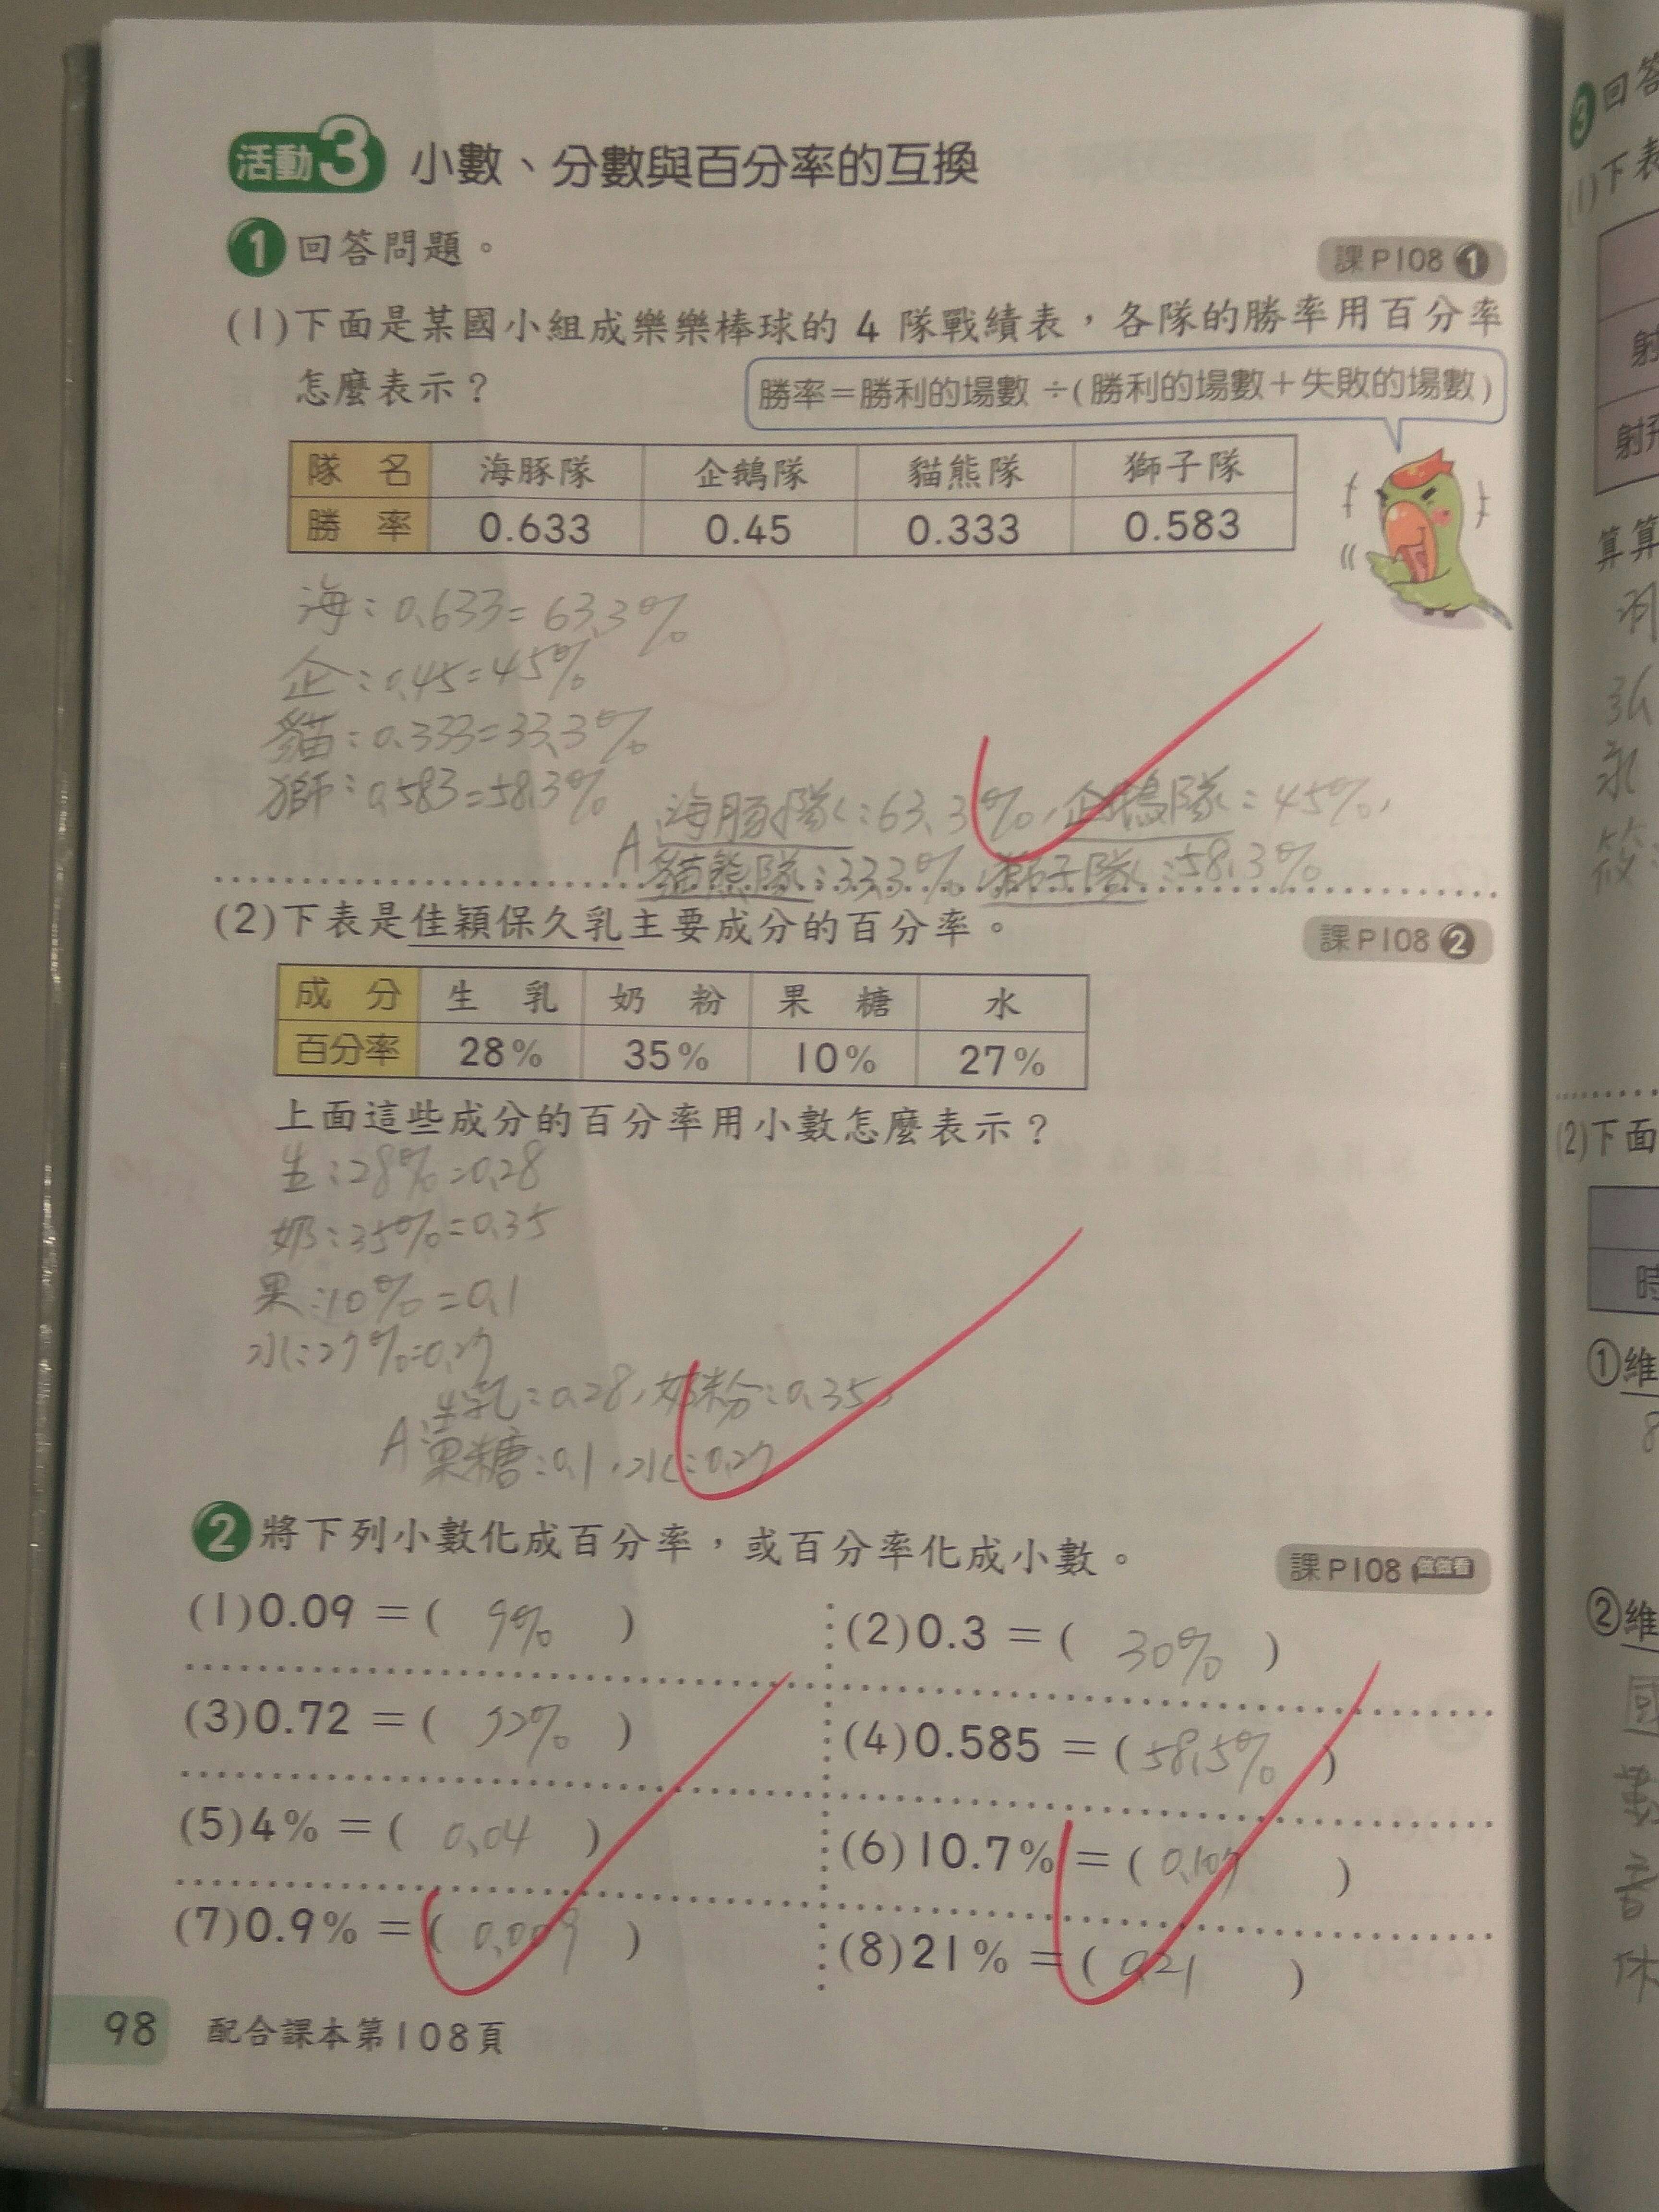 活動3 小數、分數與百分率的互換
1 回答問題。
課P108 1
(1)下面是某國小組成樂樂棒球的 4 隊戰績表，各隊的勝率用百分率
怎麼表示？
勝率＝勝利的場數÷(勝利的場數＋失敗的場數)
隊 名 海豚隊 企鵝隊 貓熊隊 獅子隊
勝 率 0.633 0.45 0.333 0.583
海：0.633=63.3%
企：0.45=45%
貓：0.333=33.3%
獅：0.583=58.3%
A：海豚隊：63.3%，企鵝隊：45%，
貓熊隊：33.3%，獅子隊：58.3%
(2)下表是佳穎保久乳主要成分的百分率。
課P108 2
成 分 生 乳 奶 粉 果 糖 水
百分率 28% 35% 10% 27%
上面這些成分的百分率用小數怎麼表示？
生：28%=0.28
奶：35%=0.35
果：10%=0.1
水：27%=0.27
生乳：0.28，奶粉：0.35，
A：果糖：0.1，水：0.27
2 將下列小數化成百分率，或百分率化成小數。
課P108 做做看
(1)0.09＝( 9% )
(2)0.3＝( 30% )
(3)0.72＝( 72% )
(4)0.585＝( 58.5% )
(5)4%＝( 0.04 )
(6)10.7%＝( 0.107 )
(7)0.9%＝( 0.009 )
(8)21%＝( 0.21 )
98 配合課本第108頁
3 回答
(1)下表
射
算算
(2)下面
時
①維
8
②維